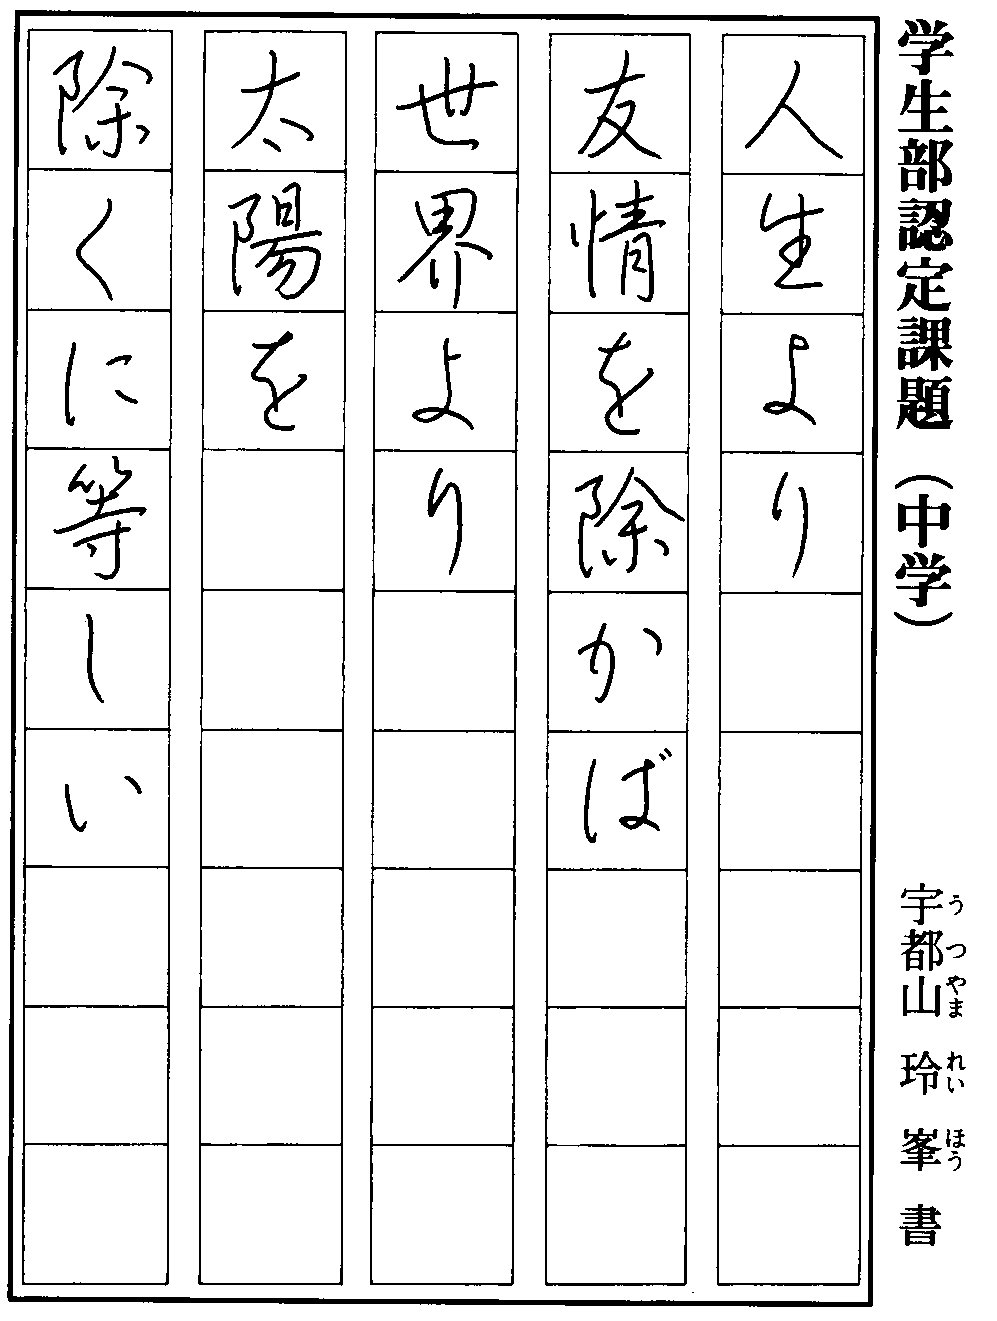 学生部認定課題（中学）
宇都山玲峯書
うつやまれいほう
人生より
友情を除かば
世界より
太陽を
除くに等しい